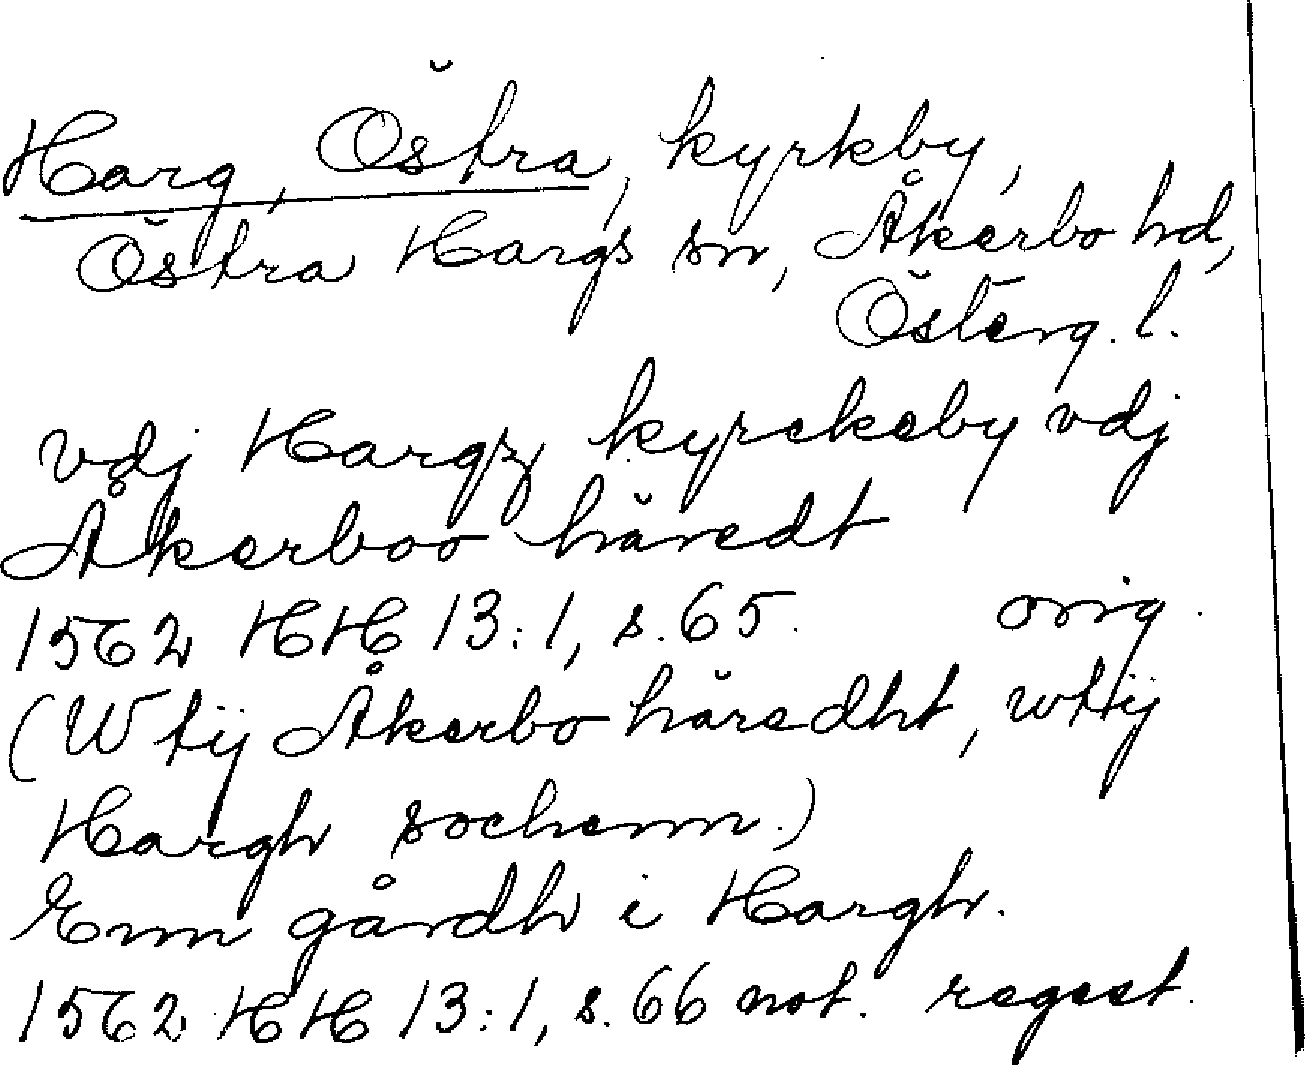 Harg, Östra, kyrkby,
Östra Hargs sn, Åkerbo hd,
Österg. l.
vdj Hargz kyrckeby vdj
Åkerboo häredt
1562 HH 13:1, s. 65. orig.
(Wtij Åkerbo häredht, wtij
Hargh sochenn.)
Enn gårdh i Hargh.
1562 HH 13:1, s. 66 not. regest.